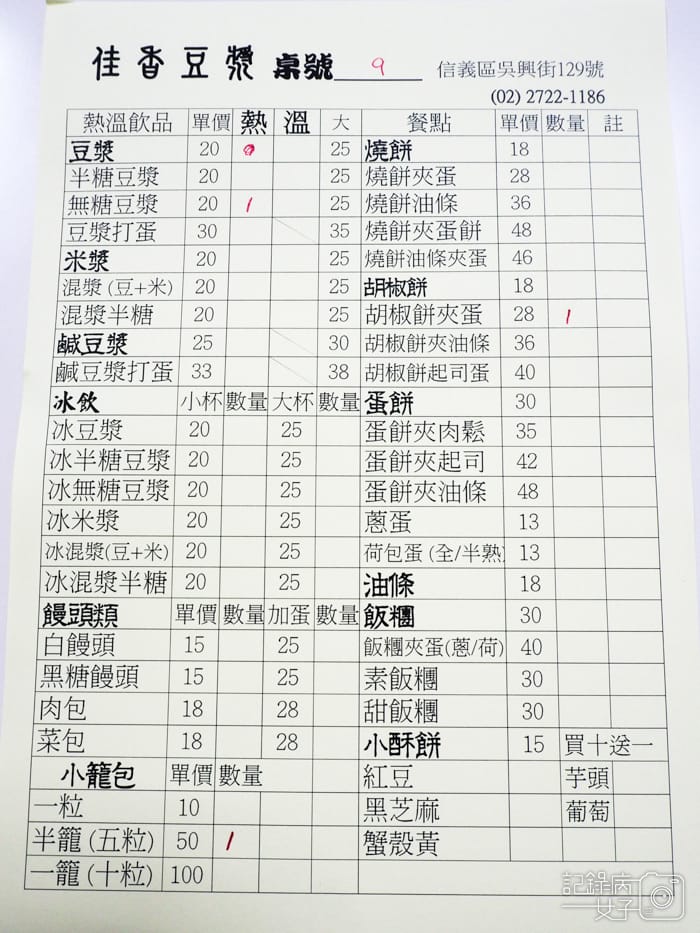 佳香豆漿 桌號 9 信義區吳興街129號
(02) 2722-1186
熱溫飲品 單價 熱 溫 大 餐點 單價 數量 註
豆漿 20 25 燒餅 18
半糖豆漿 20 25 燒餅夾蛋 28
無糖豆漿 20 1 25 燒餅油條 36
豆漿打蛋 30 35 燒餅夾蛋餅 48
米漿 20 25 燒餅油條夾蛋 46
混漿(豆+米) 20 25 胡椒餅 18
混漿半糖 20 25 胡椒餅夾蛋 28 1
鹹豆漿 25 30 胡椒餅夾油條 36
鹹豆漿打蛋 33 38 胡椒餅起司蛋 40
冰飲 小杯 數量 大杯 數量 蛋餅 30
冰豆漿 20 25 蛋餅夾肉鬆 35
冰半糖豆漿 20 25 蛋餅夾起司 42
冰無糖豆漿 20 25 蛋餅夾油條 48
冰米漿 20 25 蔥蛋 13
冰混漿(豆+米) 20 25 荷包蛋(全/半熟) 13
冰混漿半糖 20 25 油條 18
饅頭類 單價 數量 加蛋 數量 飯糰 30
白饅頭 15 25 飯糰夾蛋(蔥/荷) 40
黑糖饅頭 15 25 素飯糰 30
肉包 18 28 甜飯糰 30
菜包 18 28 小酥餅 15 買十送一
小籠包 單價 數量 紅豆 芋頭
一粒 10 黑芝麻 葡萄
半籠(五粒) 50 1 蟹殼黃
一籠(十粒) 100
記錄病
女子